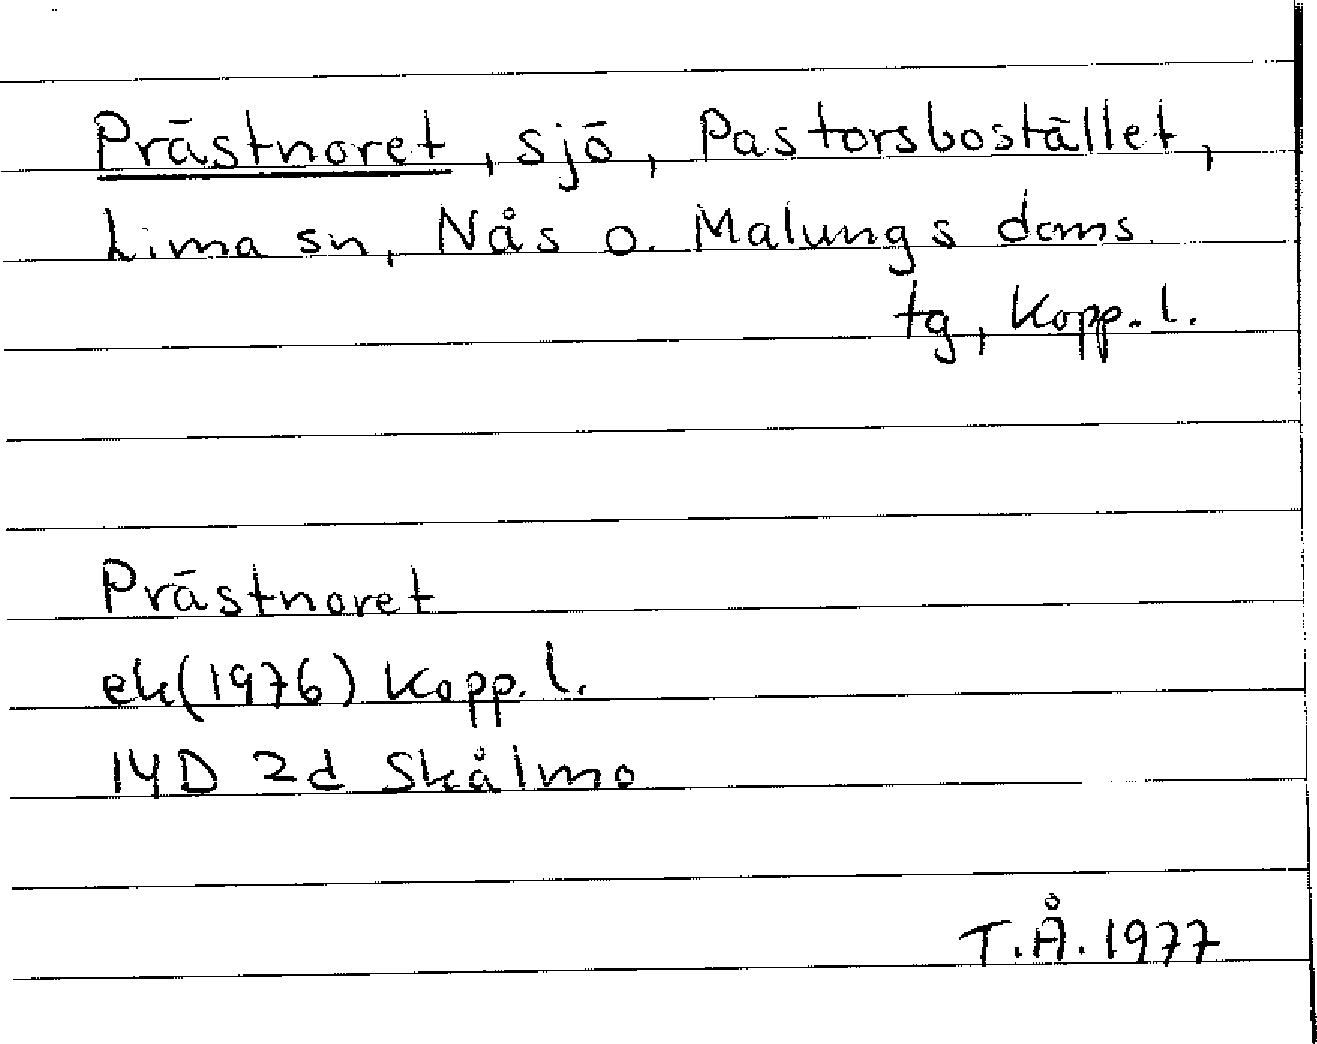 Prästnoret, sjö, Pastorsbostället,
Lima sn, Nås o. Malungs doms.
tg, Kopp. l.
Prästnoret
ek(1976) Kopp. l.
14D 2d Skålmo
T.Å. 1977